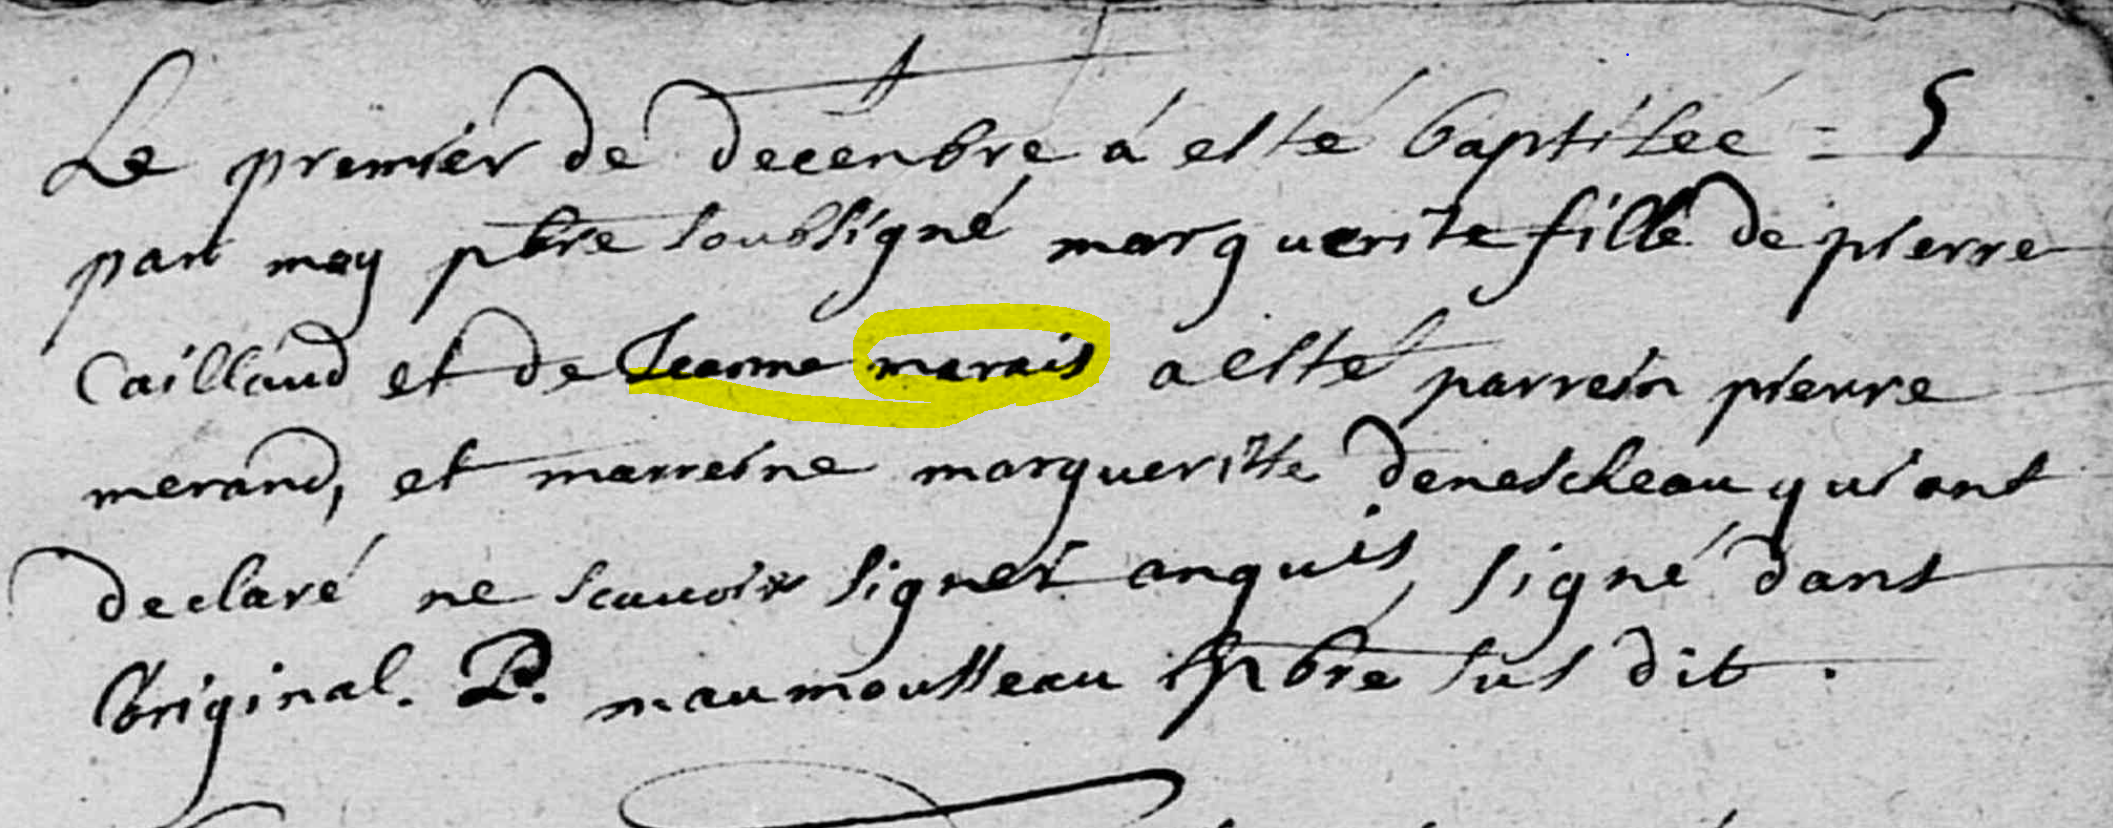 Le premier de decenbre á esté baptisée = 5
par moy pbre soubsigné marguerite fille de pierre
Caillaud et de Jeanne marais a esté parrein pierre
merand, et marreine margueritte denescheau qui ont
declaré ne scavoir signer anquis, signé dans
l'original. P. maumousseau pbre sus dit.